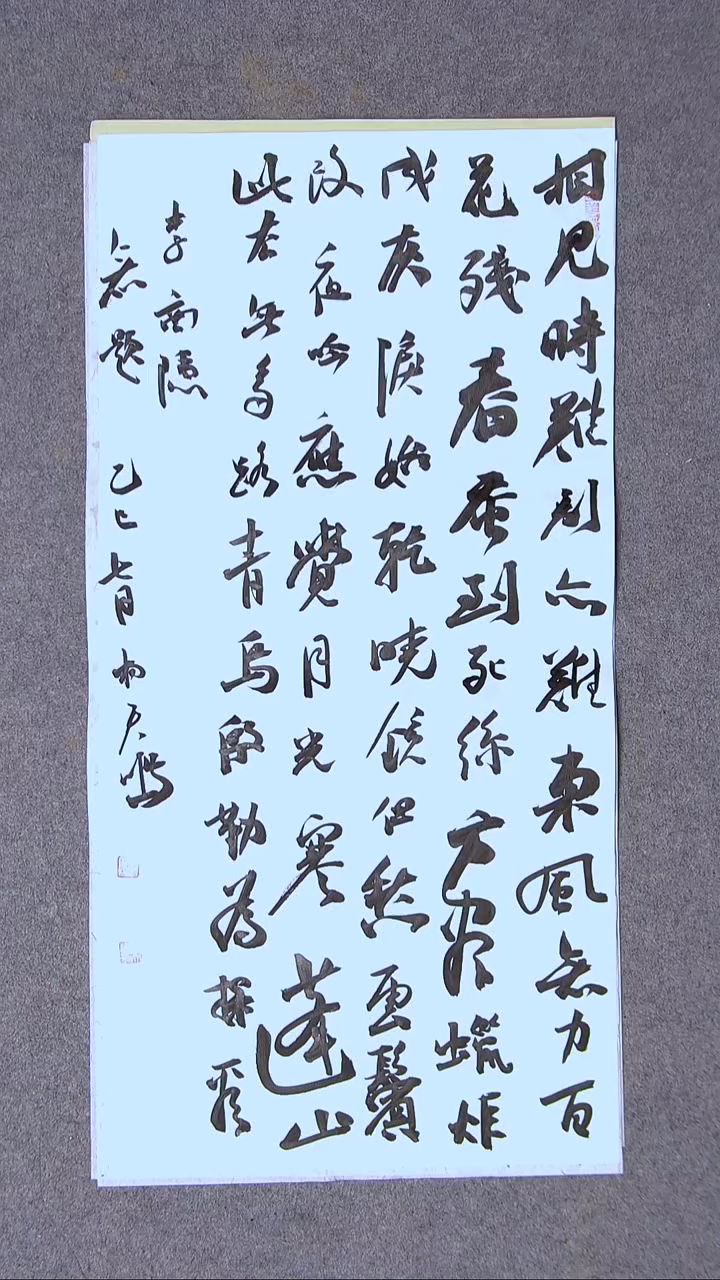 相見時難別亦難東風無力百
花殘春蚕到死絲方盡蠟炬
成灰淚始乾曉鏡但愁雲鬢
改夜吟應覺月光寒蓬山
此去無多路青鳥殷勤為探看
李商隱
無題 乙巳七月